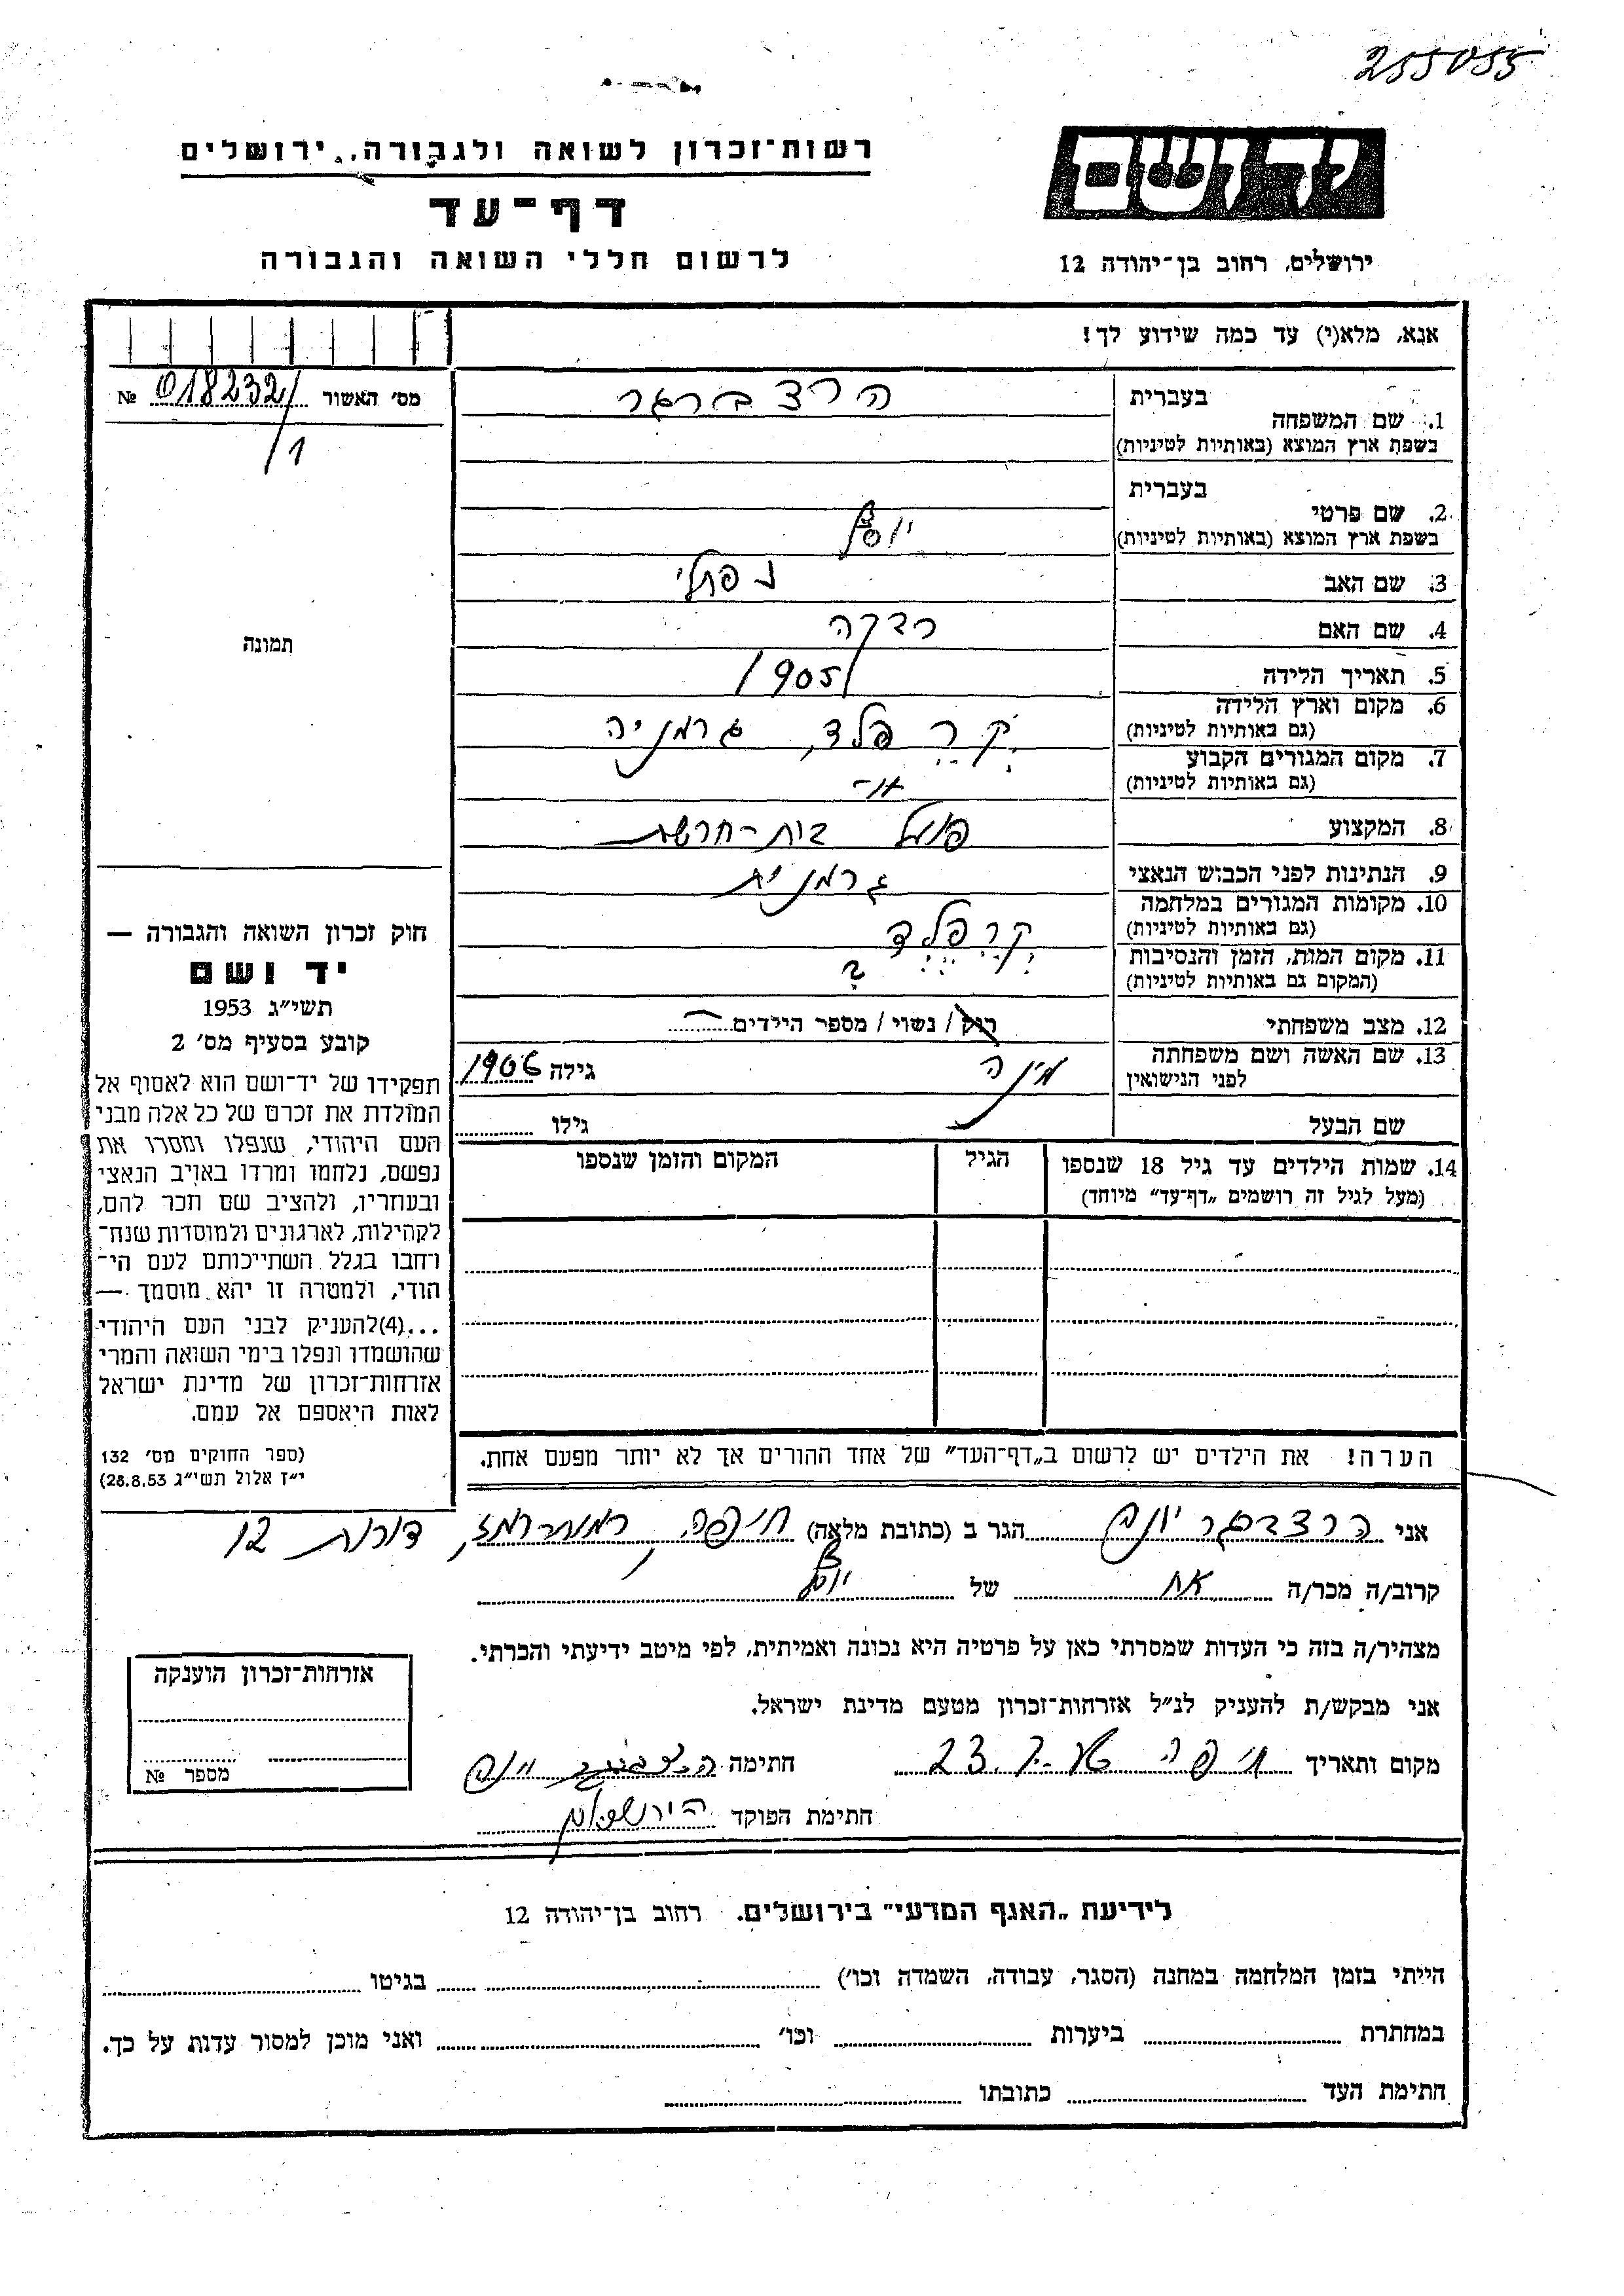 255055
יד ושם
ירושלים, רחוב בן־יהודה 12
רשות־זכרון לשואה ולגבורה, ירושלים
דף־עד
לרשום חללי השואה והגבורה
אנא, מלא(י) עד כמה שידוע לך!
מס׳ האשור № 018232/
/1
תמונה
בעברית
1. שם המשפחה הרצברגר
בשפת ארץ המוצא (באותיות לטיניות)
בעברית
2. שם פרטי
בשפת ארץ המוצא (באותיות לטיניות) יוסף
3. שם האב נפתלי
4. שם האם רבקה
5. תאריך הלידה 1905
6. מקום וארץ הלידה קרפלד, גרמניה
(גם באותיות לטיניות)
7. מקום המגורים הקבוע
(גם באותיות לטיניות)
8. המקצוע פועל בית-חרשת
9. הנתינות לפני הכבוש הנאצי גרמנית
10. מקומות המגורים במלחמה
(גם באותיות לטיניות) קרפלד
11. מקום המות, הזמן והנסיבות
(המקום גם באותיות לטיניות) ?
12. מצב משפחתי רוק / נשוי / מספר הילדים
13. שם האשה ושם משפחתה מינה גילה 1906
לפני הנישואין
שם הבעל גילו
14. שמות הילדים עד גיל 18 שנספו הגיל המקום והזמן שנספו
(מעל לגיל זה רושמים „דף־עד״ מיוחד)
הערה! את הילדים יש לרשום ב„דף־העד״ של אחד ההורים אך לא יותר מפעם אחת.
חוק זכרון השואה והגבורה —
יד ושם
תשי״ג 1953
קובע בסעיף מס׳ 2
תפקידו של יד־ושם הוא לאסוף אל
המולדת את זכרם של כל אלה מבני
העם היהודי, שנפלו ומסרו את
נפשם, נלחמו ומרדו באויב הנאצי
ובעוזריו, ולהציב שם וזכר להם,
לקהילות, לארגונים ולמוסדות שנח־
רחבו בגלל השתייכותם לעם הי־
הודי, ולמטרה זו יהא מוסמך —
...(4)להעניק לבני העם היהודי
שהושמדו ונפלו בימי השואה והמרי
אזרחות־זכרון של מדינת ישראל
לאות היאספם אל עמם.
(ספר החוקים מס׳ 132
י״ז אלול תשי״ג 28.8.53)
אני הרצברגר יונה הגר ב (כתובת מלאה) חיפה, רמת רמז, דורות 12
קרוב/ה מכר/ה אח של יוסף
מצהיר/ה בזה כי העדות שמסרתי כאן על פרטיה היא נכונה ואמיתית, לפי מיטב ידיעתי והכרתי.
אני מבקש/ת להעניק לנ״ל אזרחות־זכרון מטעם מדינת ישראל.
מקום ותאריך חיפה 23.7 חתימה הרצברגר יונה
חתימת הפוקד
אזרחות־זכרון הוענקה
מספר №
לידיעת „האגף המדעי״ בירושלים. רחוב בן־יהודה 12
הייתי בזמן המלחמה במחנה (הסגר, עבודה, השמדה וכו׳) בגיטו
במחתרת ביערות וכו׳ ואני מוכן למסור עדות על כך.
חתימת העד כתובתו